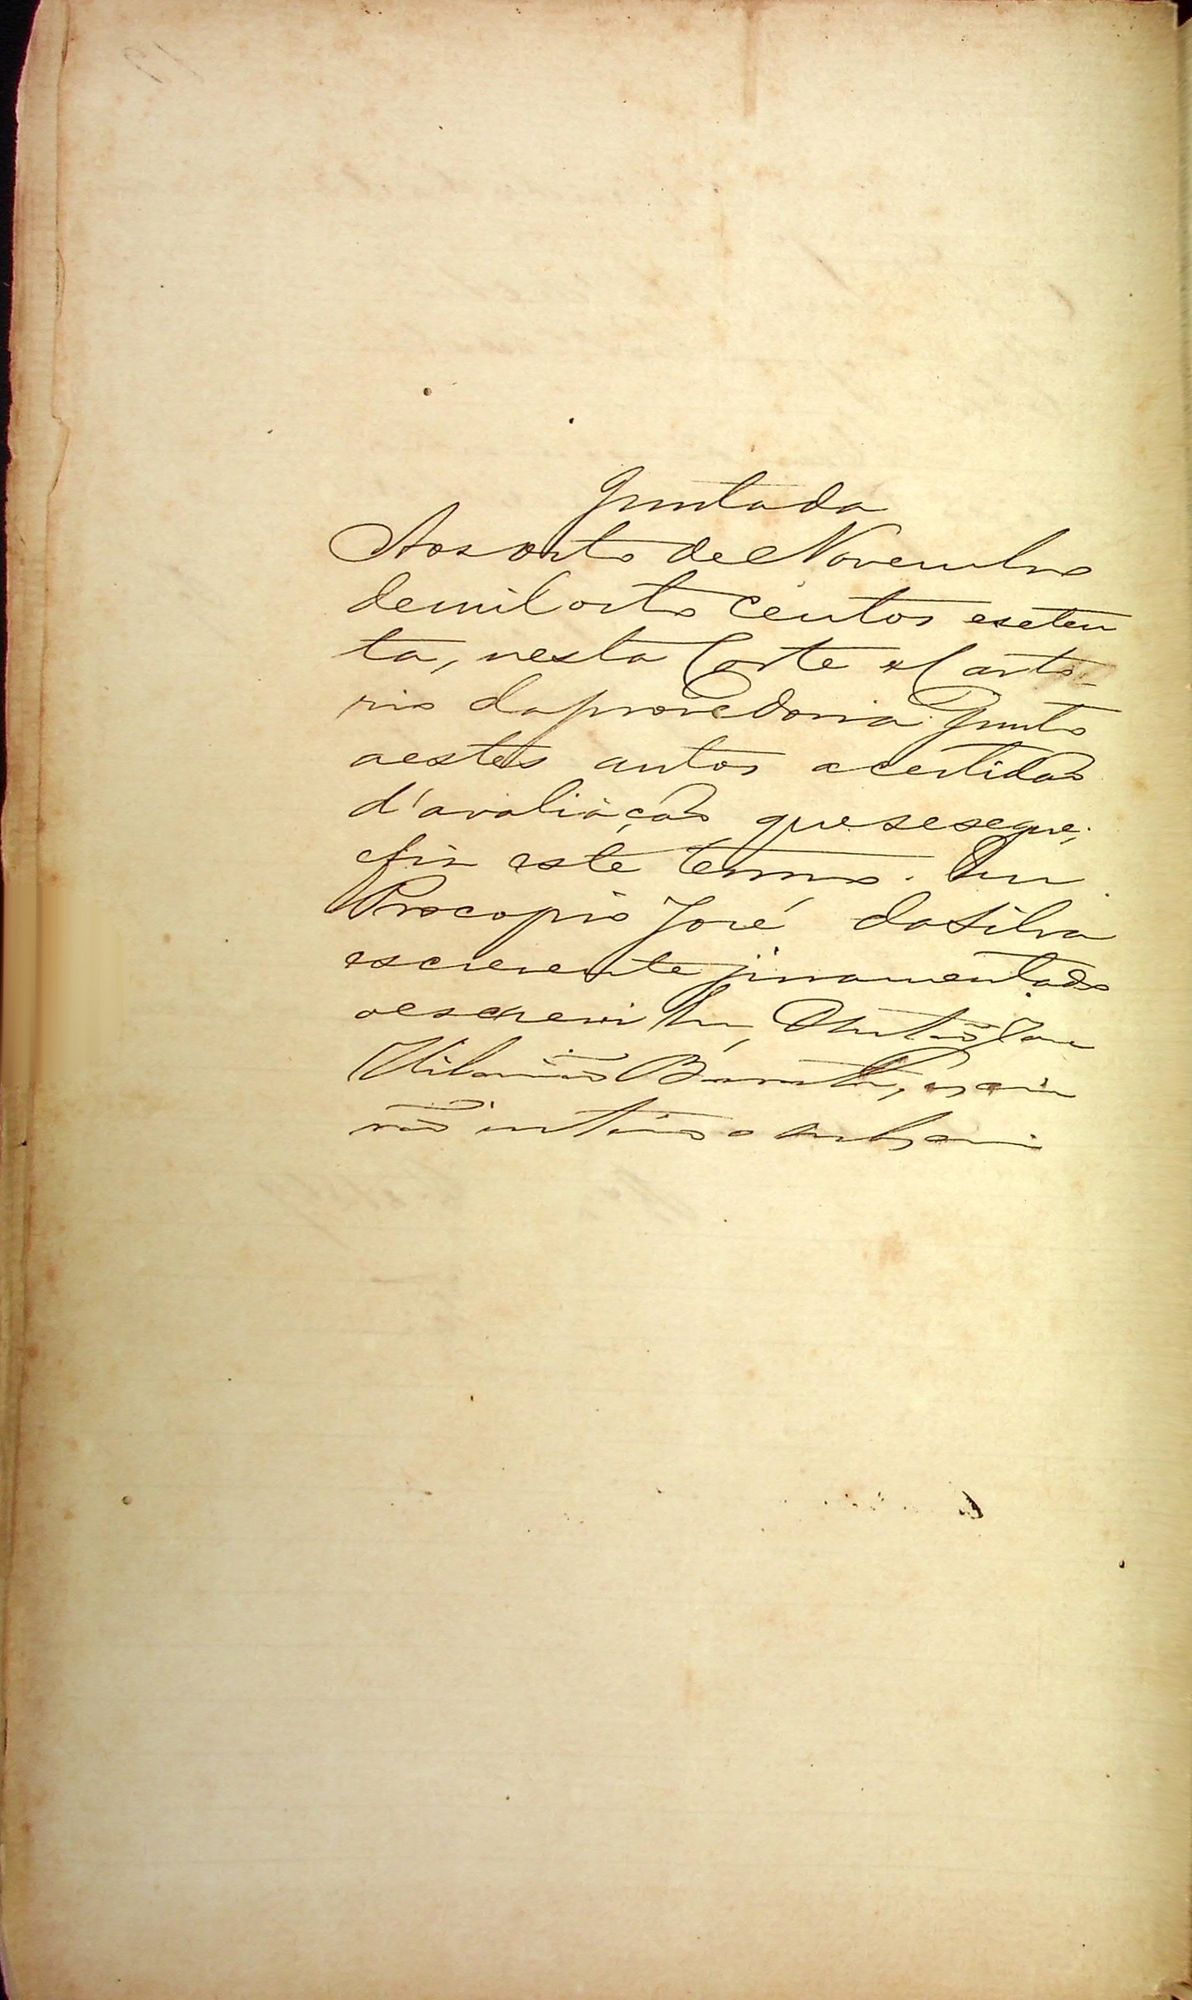 Juntada
Aos oito de Novembro
de mil oito centos e seten
ta, nesta Corte e Carto-
rio da provedoria Junto
a estes autos a certidão
d'avaliação que se segue;
e fiz este termo. Eu
Procopio José da Silva
escrevente juramentado
o escrevi Eu, Antonio José
Hilarião Barata, escri
vão interino o subscrevi